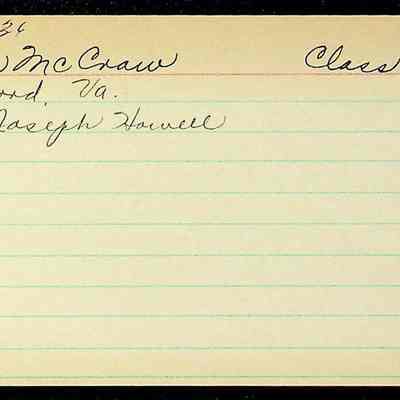 34
McCraw Class
Va.
Joseph Howell